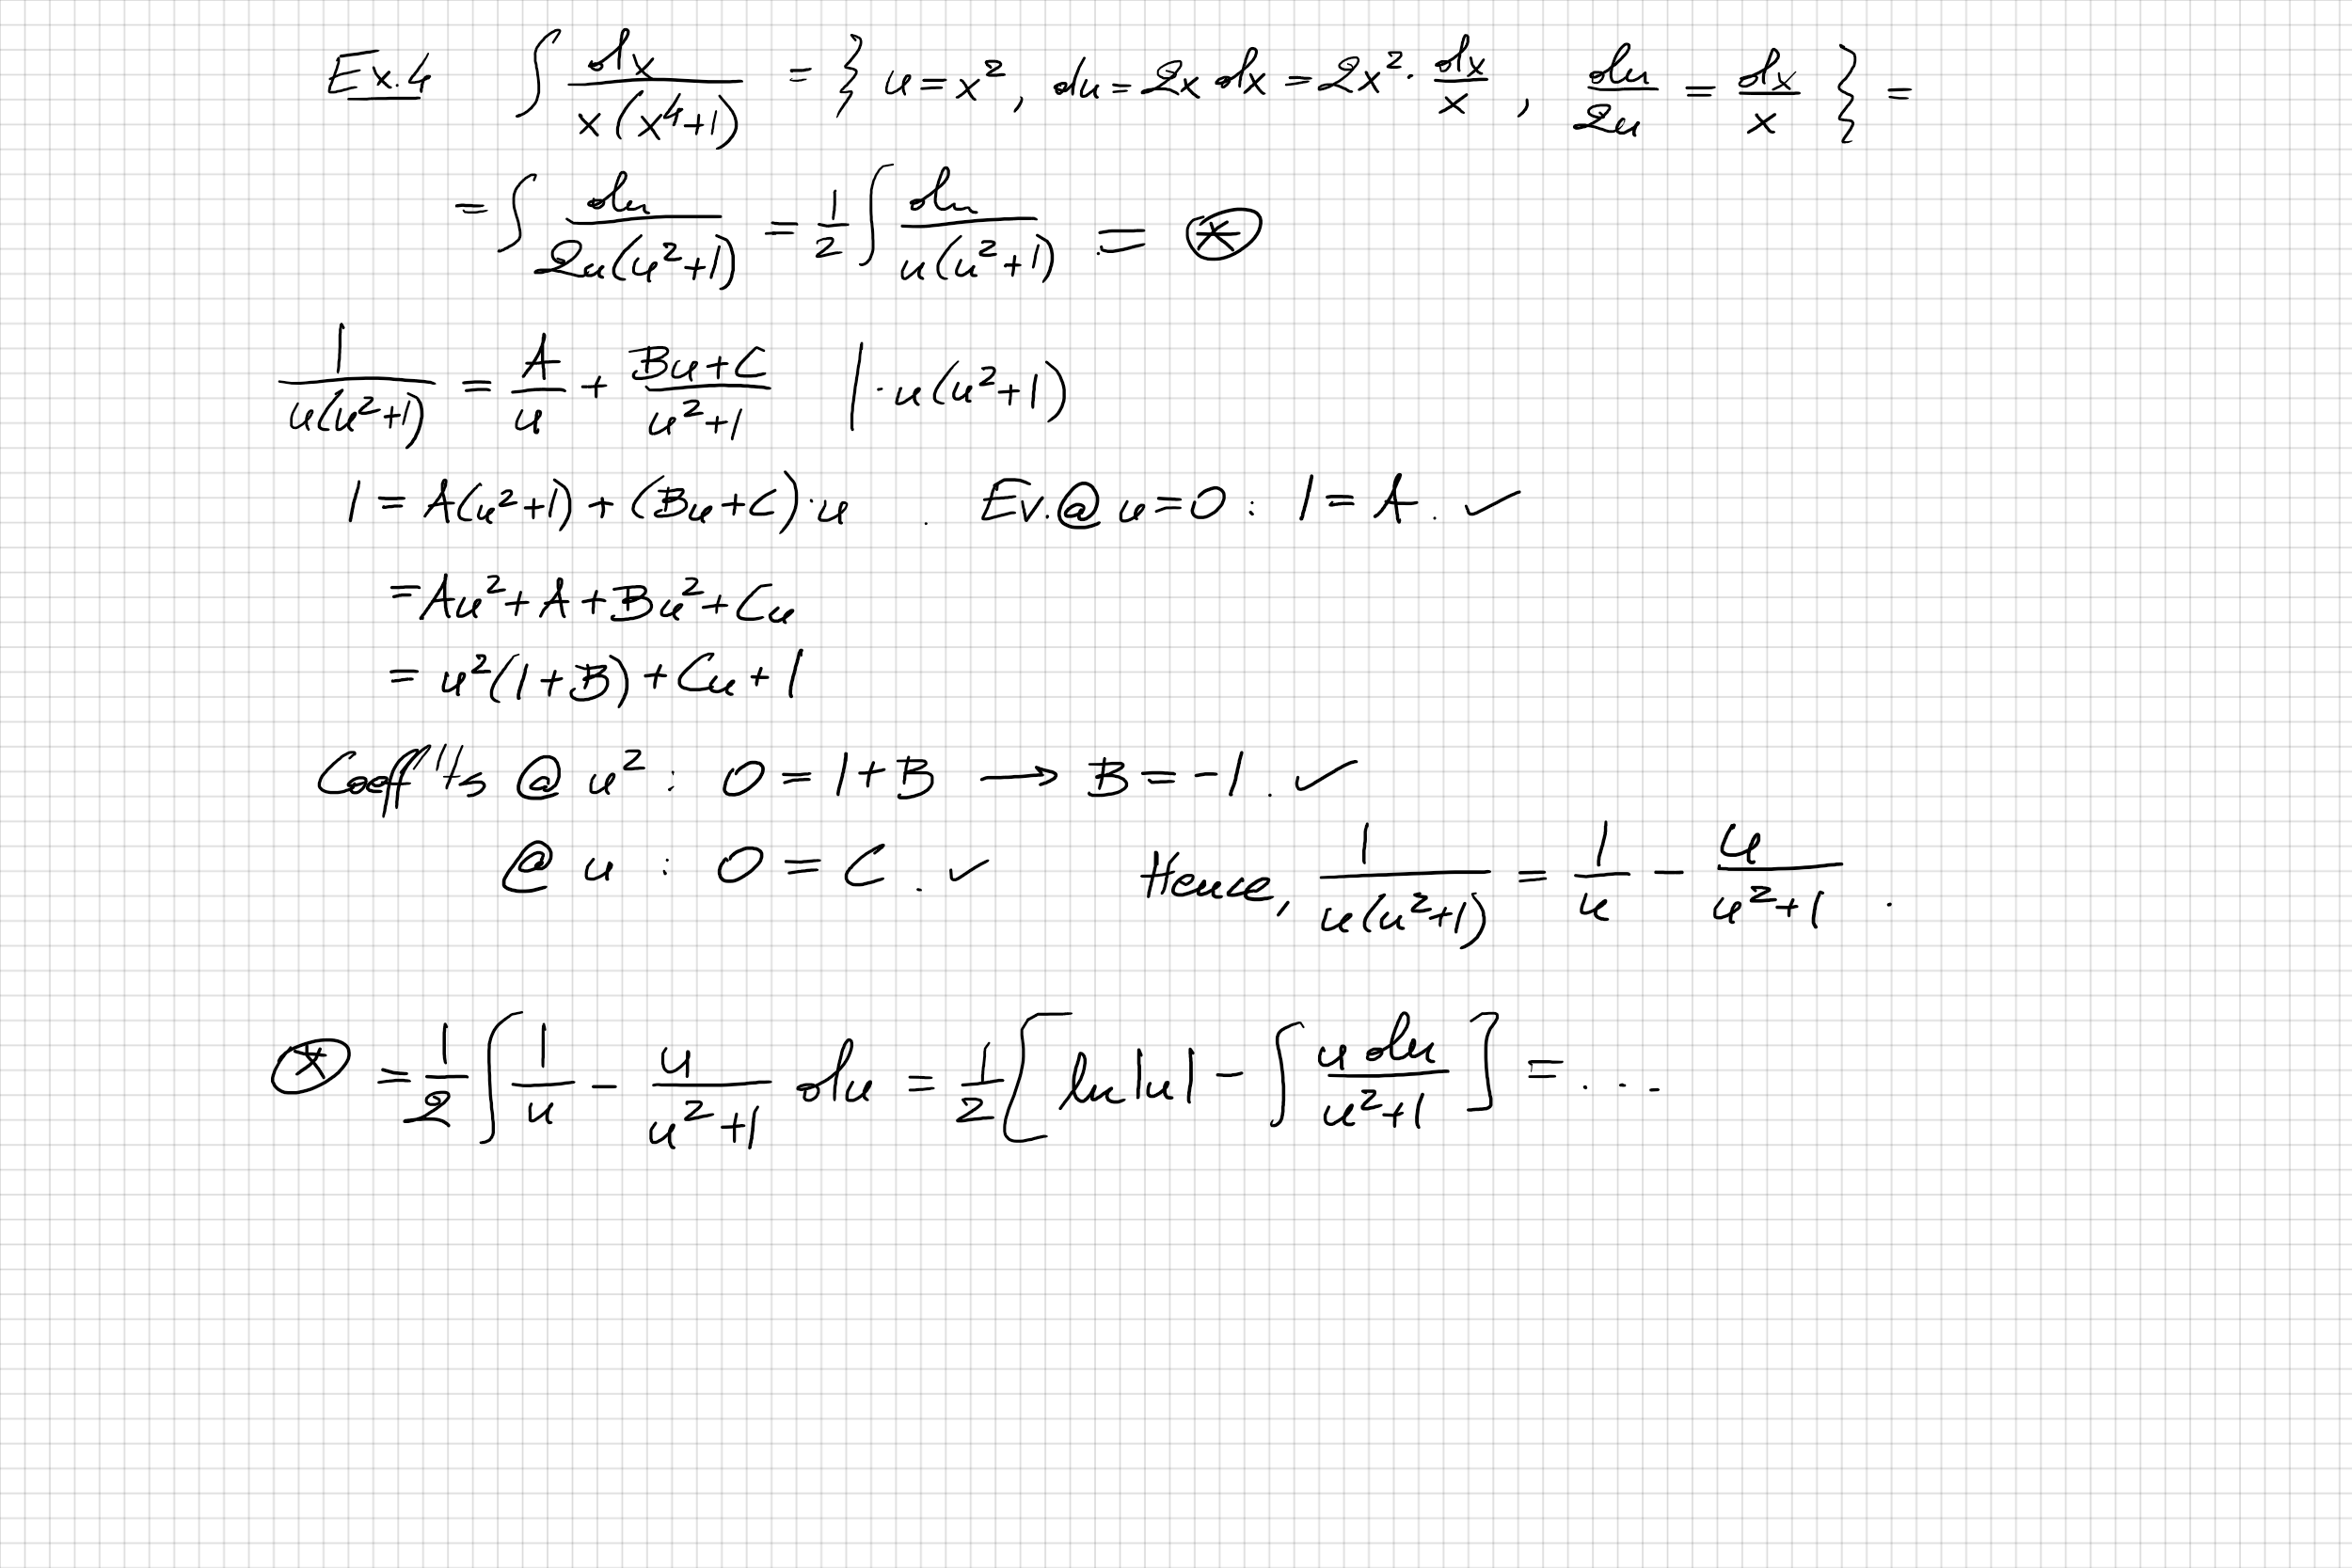 Ex.4 ∫ dx / (x(x⁴+1)) = } u = x², du = 2x dx = 2x² · dx/x , du/2u = dx/x } =
= ∫ du / (2u(u²+1)) = 1/2 ∫ du / (u(u²+1)) = ⊛
1 / (u(u²+1)) = A/u + (Bu+C)/(u²+1) | · u(u²+1)
1 = A(u²+1) + (Bu+C)·u . Ev. @ u=0 : 1 = A. ✓
= Au² + A + Bu² + Cu
= u²(1+B) + Cu + 1
Coeff'ts @ u² : 0 = 1+B → B = -1. ✓
@ u : 0 = C. ✓ Hence, 1 / (u(u²+1)) = 1/u - u/(u²+1) .
⊛ = 1/2 ∫ 1/u - u/(u²+1) du = 1/2 [ ln|u| - ∫ u du / (u²+1) ] = ...